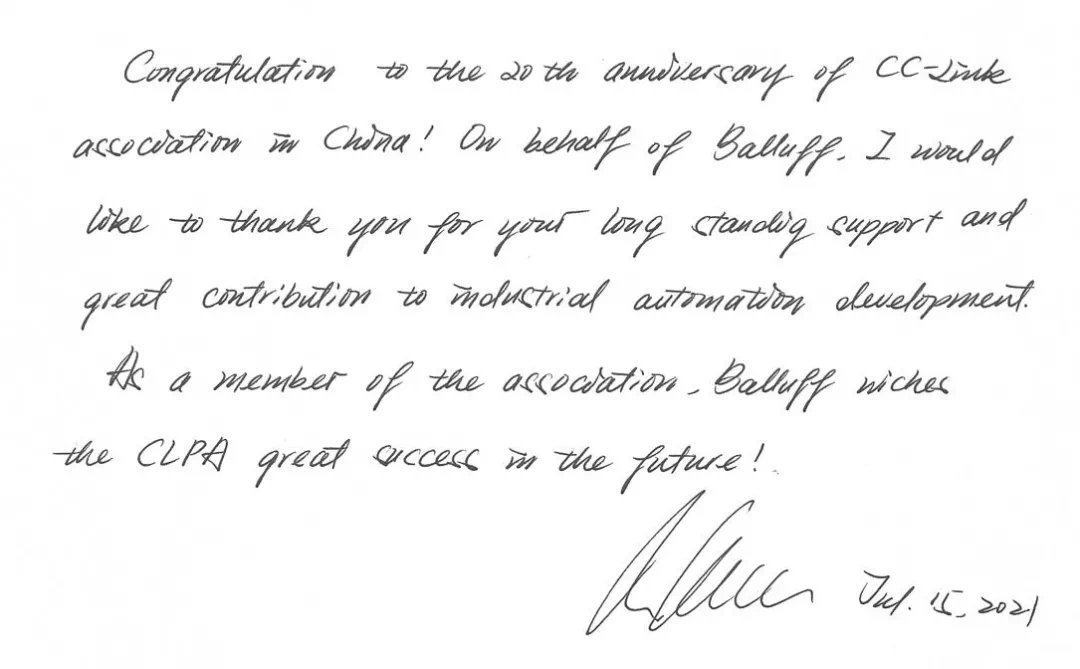 Congratulation to the 20th anniversary of CC-Link
association in China! On behalf of Balluff, I would
like to thank you for your long standig support and
great contribution to industrial automation development.
As a member of the association, Balluff wiches
the CLPA great success in the future!
Jul. 15, 2021